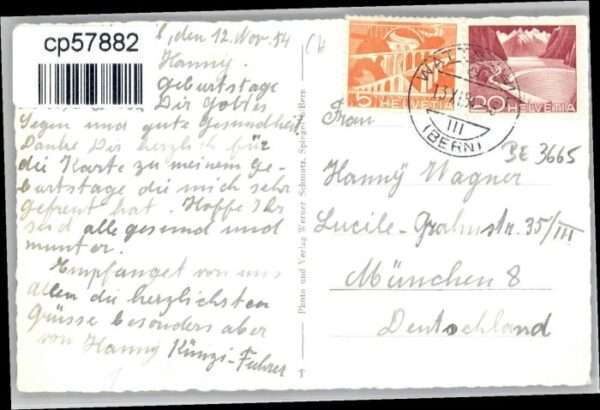 cp57882
den 12. Nov. 54
Hanny.
Geburtstage
Dir Gottes
Segen und gute Gesundheit
Danke Dir herzlich für
die Karte zu meinem Ge-
burtstage die mich sehr
gefreut hat. Hoffe Ihr
seid alle gesund und
munter.
Empfanget von uns
allen die herzlichsten
Grüsse besonders aber
von Hanny Künzi-Fuhrer
Photo und Verlag Werner Schmutz, Spiegel b. Bern
5 HELVETIA
20 HELVETIA
III
(BERN)
BE 3665
Frau
Hanny Wagner
Lucile-Grahnstr. 35/III
München 8
Deutschland